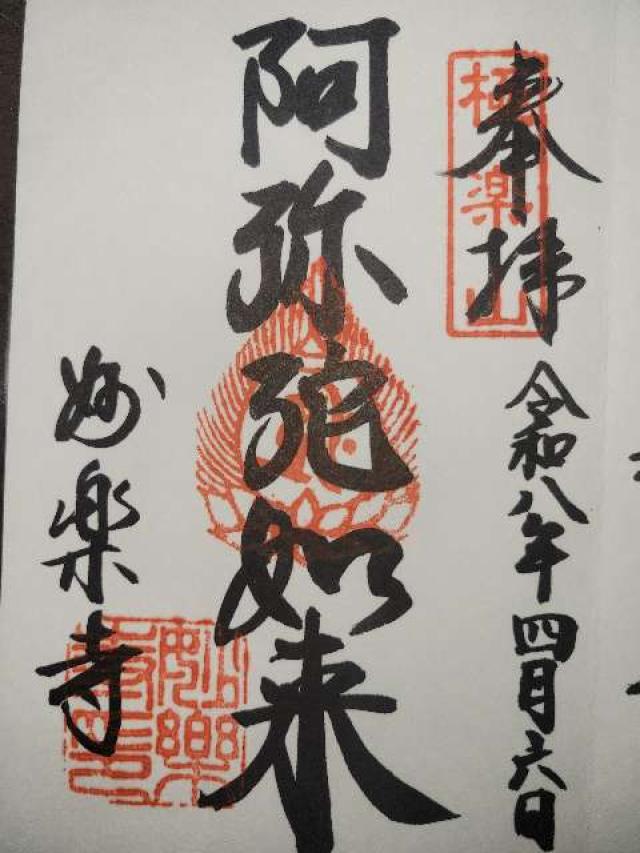 奉拝
極楽山
令和八年四月六日
阿弥陀如来
妙楽寺
妙樂寺印